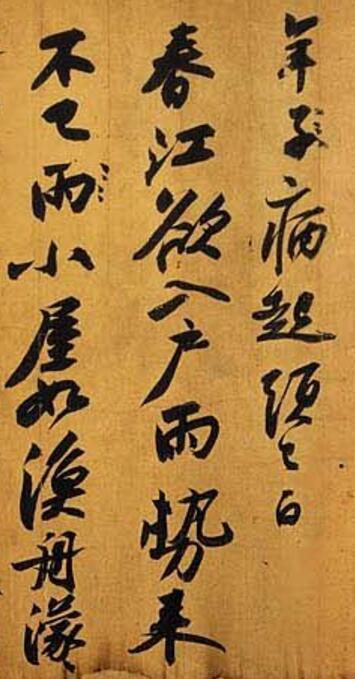 年子病起須已白
春江欲入戶雨勢来
不已雨小屋如漁舟濛々